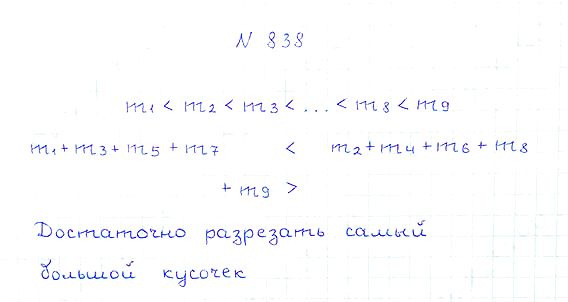 N 838
m1 < m2 < m3 < ... < m8 < m9
m1 + m3 + m5 + m7 < m2 + m4 + m6 + m8
+ m9 >
Достаточно разрезать самый
большой кусочек